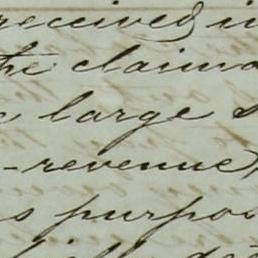 received in
the claima
large s
-revenue,
s purpos